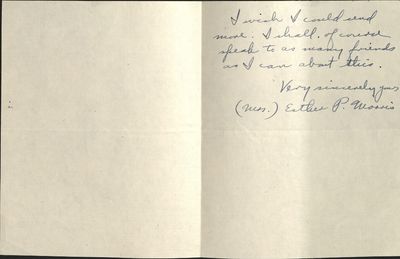 I wish I could send
more. I shall, of course
speak to as many friends
as I can about this.
Very sincerely yrs
(Mrs.) Esther P. Morris